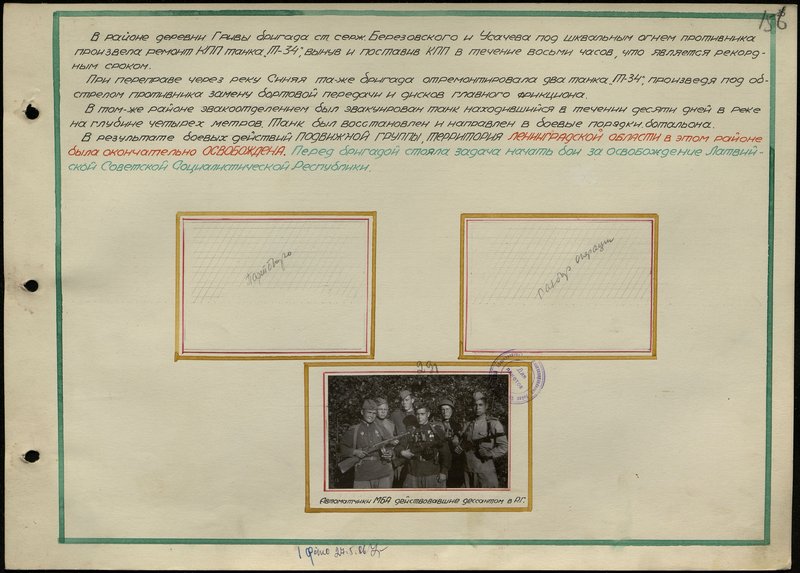 156
В районе деревни Гривы бригада ст. серж. Березовского и Усачева под шквальным огнем противника
произвела ремонт КПП танка „Т-34“, вынув и поставив КПП в течение восьми часов, что является рекорд-
ным сроком.
При переправе через реку Синяя та-же бригада отремонтировала два танка „Т-34“, произведя под об-
стрелом противника замену бортовой передачи и дисков главного фрикциона.
В том-же районе эвакоотделением был эвакуирован танк находившийся в течении десяти дней в реке
на глубине четырех метров. Танк был восстановлен и направлен в боевые порядки батальона.
В результате боевых действий ПОДВИЖНОЙ ГРУППЫ, территория ЛЕНИНГРАДСКОЙ области в этом районе
была окончательно ОСВОБОЖДЕНА. Перед бригадой стояла задача начать бои за освобождение Латвий-
ской Советской Социалистической Республики.
Партбюро
Разбор операции
291
Автоматчики МБА действовавшие дессантом в П.Г.
1 фото 27.5.86